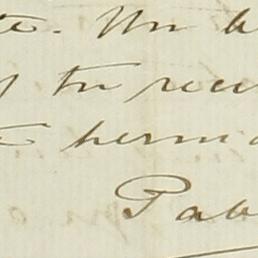 te. Un b
y tu recu
te herma
Pab